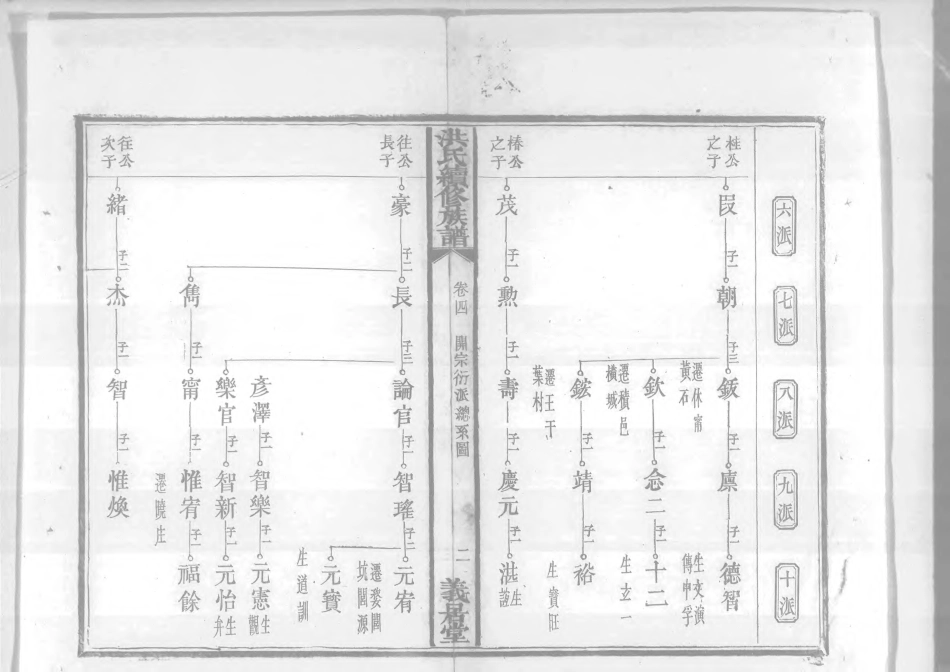 六派
七派
八派
九派
十派
桂公
之子
子一
朝
子三
子一
廪
子一
德智
遷休甯
黃石
欽
子一
二
子一
十二
生玄一
遷積邑
橫城
鋐
子一
靖
子一
裕
生實旺
椿公
之子
茂
子一
勲
子一
壽
子一
慶元
子一
遷王干
葉村
洪氏續修族譜
卷四
開宗衍派總系圖
二
義居堂
往公
長子
豪
子二
長
子三
論官
子一
智瑤
子二
元宥
遷婺
坑
源
元實
生道訓
彥澤
子一
智樂
子一
元憲
樂官
子一
智新
子一
元怡
雋
子一
甯
子一
惟宥
子一
福餘
往公
次子
緒
子二
杰
子一
智
子一
惟煥